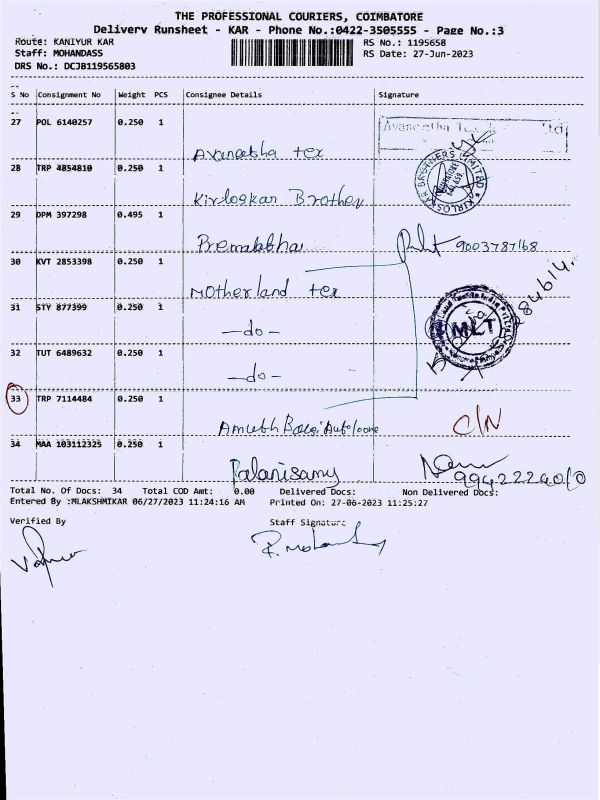 THE PROFESSIONAL COURIERS, COIMBATORE
Delivery Runsheet - KAR - Phone No.:0422-3505555 - Page No.:3
Route: KANIYUR KAR RS No.: 1195658
Staff: MOHANDASS RS Date: 27-Jun-2023
DRS No.: DCJB119565803
S No Consignment No Weight PCS Consignee Details Signature
27 POL 6140257 0.250 1
Avaneetha Tex
28 TRP 4854810 0.250 1
Kirloskar Brothers
KIRLOSKAR BROTHERS LIMITED
29 DPM 397298 0.495 1
Premalabha 9003787168
30 KVT 2853398 0.250 1
Motherland tex
31 STY 877399 0.250 1
-do-
MLT
32 TUT 6489632 0.250 1
-do-
33 TRP 7114484 0.250 1
C/N
34 MAA 103112325 0.250 1
Palanisamy
Total No. Of Docs: 34 Total COD Amt: 0.00 Delivered Docs: Non Delivered Docs:
Entered By :MLAKSHMIKAR 06/27/2023 11:24:16 AM Printed On: 27-06-2023 11:25:27
Verified By Staff Signature